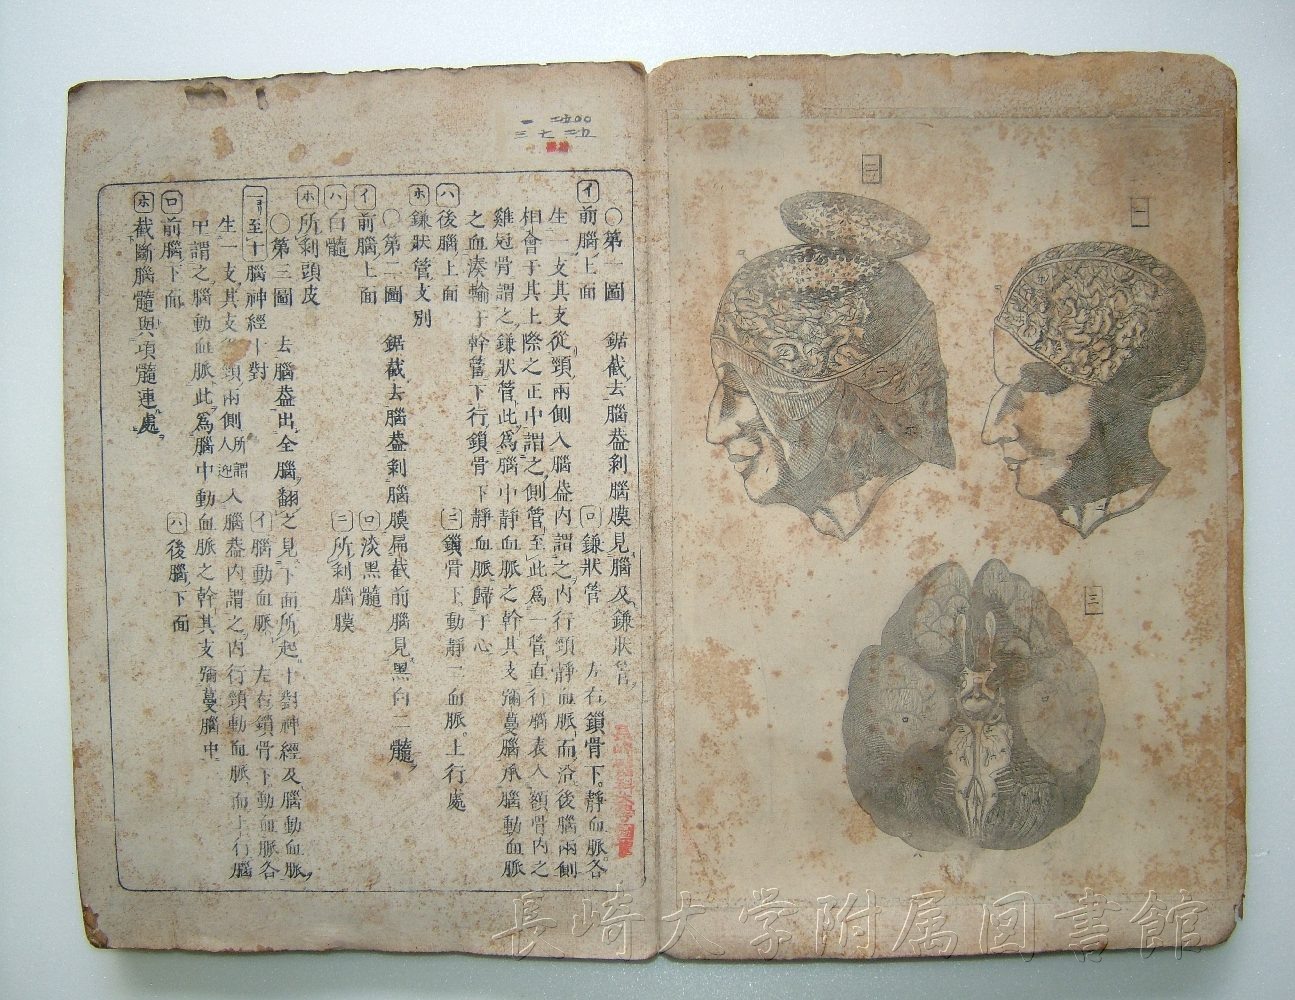 〇第一圖　鋸截去腦葢剥腦膜見腦及鎌狀管
イ前腦上面　ロ鎌狀管　左右鎖骨下靜血脈各
生一支其支從頸兩側入腦葢内謂之内行頸靜血脈而沿後腦兩側
相會于其上際之正中謂之側管至此爲一管直行腦表入額骨内之
雞冠骨謂之鎌狀管此爲腦中靜血脈之幹其支彌蔓腦承腦動血脈
之血湊輸于幹管下行鎖骨下靜血脈歸于心
ハ後腦上面　ニ鎖骨下動靜二血脈上行處
ホ鎌狀管支別
〇第二圖　鋸截去腦葢剥腦膜扁截前腦見黑白二髓
イ前腦上面　ロ淡黑髓
ハ白髓　ニ所剥腦膜
ホ所剥頭皮
〇第三圖　去腦葢出全腦翻之見下面所起十對神經及腦動血脈
一至十腦神經十對　イ腦動血脈　左右鎖骨下動血脈各
生一支其支從頸兩側所謂人迎入腦葢内謂之内行頸動血脈而上行腦
中謂之腦動血脈此爲腦中動血脈之幹其支彌蔓腦中
ロ前腦下面　ハ後腦下面
ホ截斷腦髓與項髓連處
一
二
三
長崎大学附属図書館